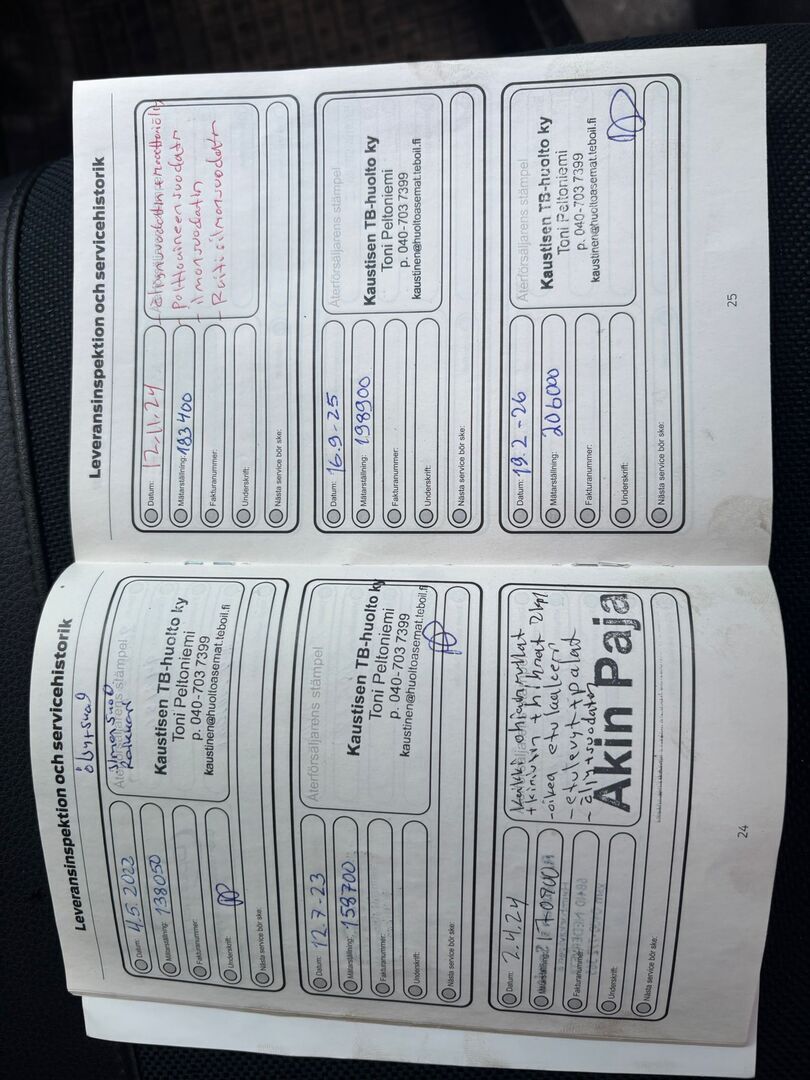 Leveransinspektion och servicehistorik
öljyt+suod
ilmansuod
Datum: 4.5.2022
Mätarställning: 138050
Fakturanummer:
Underskrift:
Nästa service bör ske:
Återförsäljarens stämpel
Kaustisen TB-huolto ky
Toni Peltoniemi
p. 040-703 7399
kaustinen@huoltoasemat.teboil.fi
Datum: 12.7-23
Mätarställning: 158700
Fakturanummer:
Underskrift:
Nästa service bör ske:
Återförsäljarens stämpel
Kaustisen TB-huolto ky
Toni Peltoniemi
p. 040-703 7399
kaustinen@huoltoasemat.teboil.fi
Datum: 2.4.24
Mätarställning:
Fakturanummer:
Underskrift:
Nästa service bör ske:
Kaikki ohjainrullat
+ kiristin + hihnat 2kpl
-oikea etukaaleeri
-etulevyt+palat
-öljyt+suodatin
Akin Paja
24
Leveransinspektion och servicehistorik
Datum: 12.11.24
Mätarställning: 183400
Fakturanummer:
Underskrift:
Nästa service bör ske:
-Polttoaineensuodatin
-ilmansuodatin
-Raitisilmansuodatin
Datum: 16.9-25
Mätarställning: 198900
Fakturanummer:
Underskrift:
Nästa service bör ske:
Återförsäljarens stämpel
Kaustisen TB-huolto ky
Toni Peltoniemi
p. 040-703 7399
kaustinen@huoltoasemat.teboil.fi
Datum: 19.2-26
Mätarställning: 206000
Fakturanummer:
Underskrift:
Nästa service bör ske:
Återförsäljarens stämpel
Kaustisen TB-huolto ky
Toni Peltoniemi
p. 040-703 7399
kaustinen@huoltoasemat.teboil.fi
25